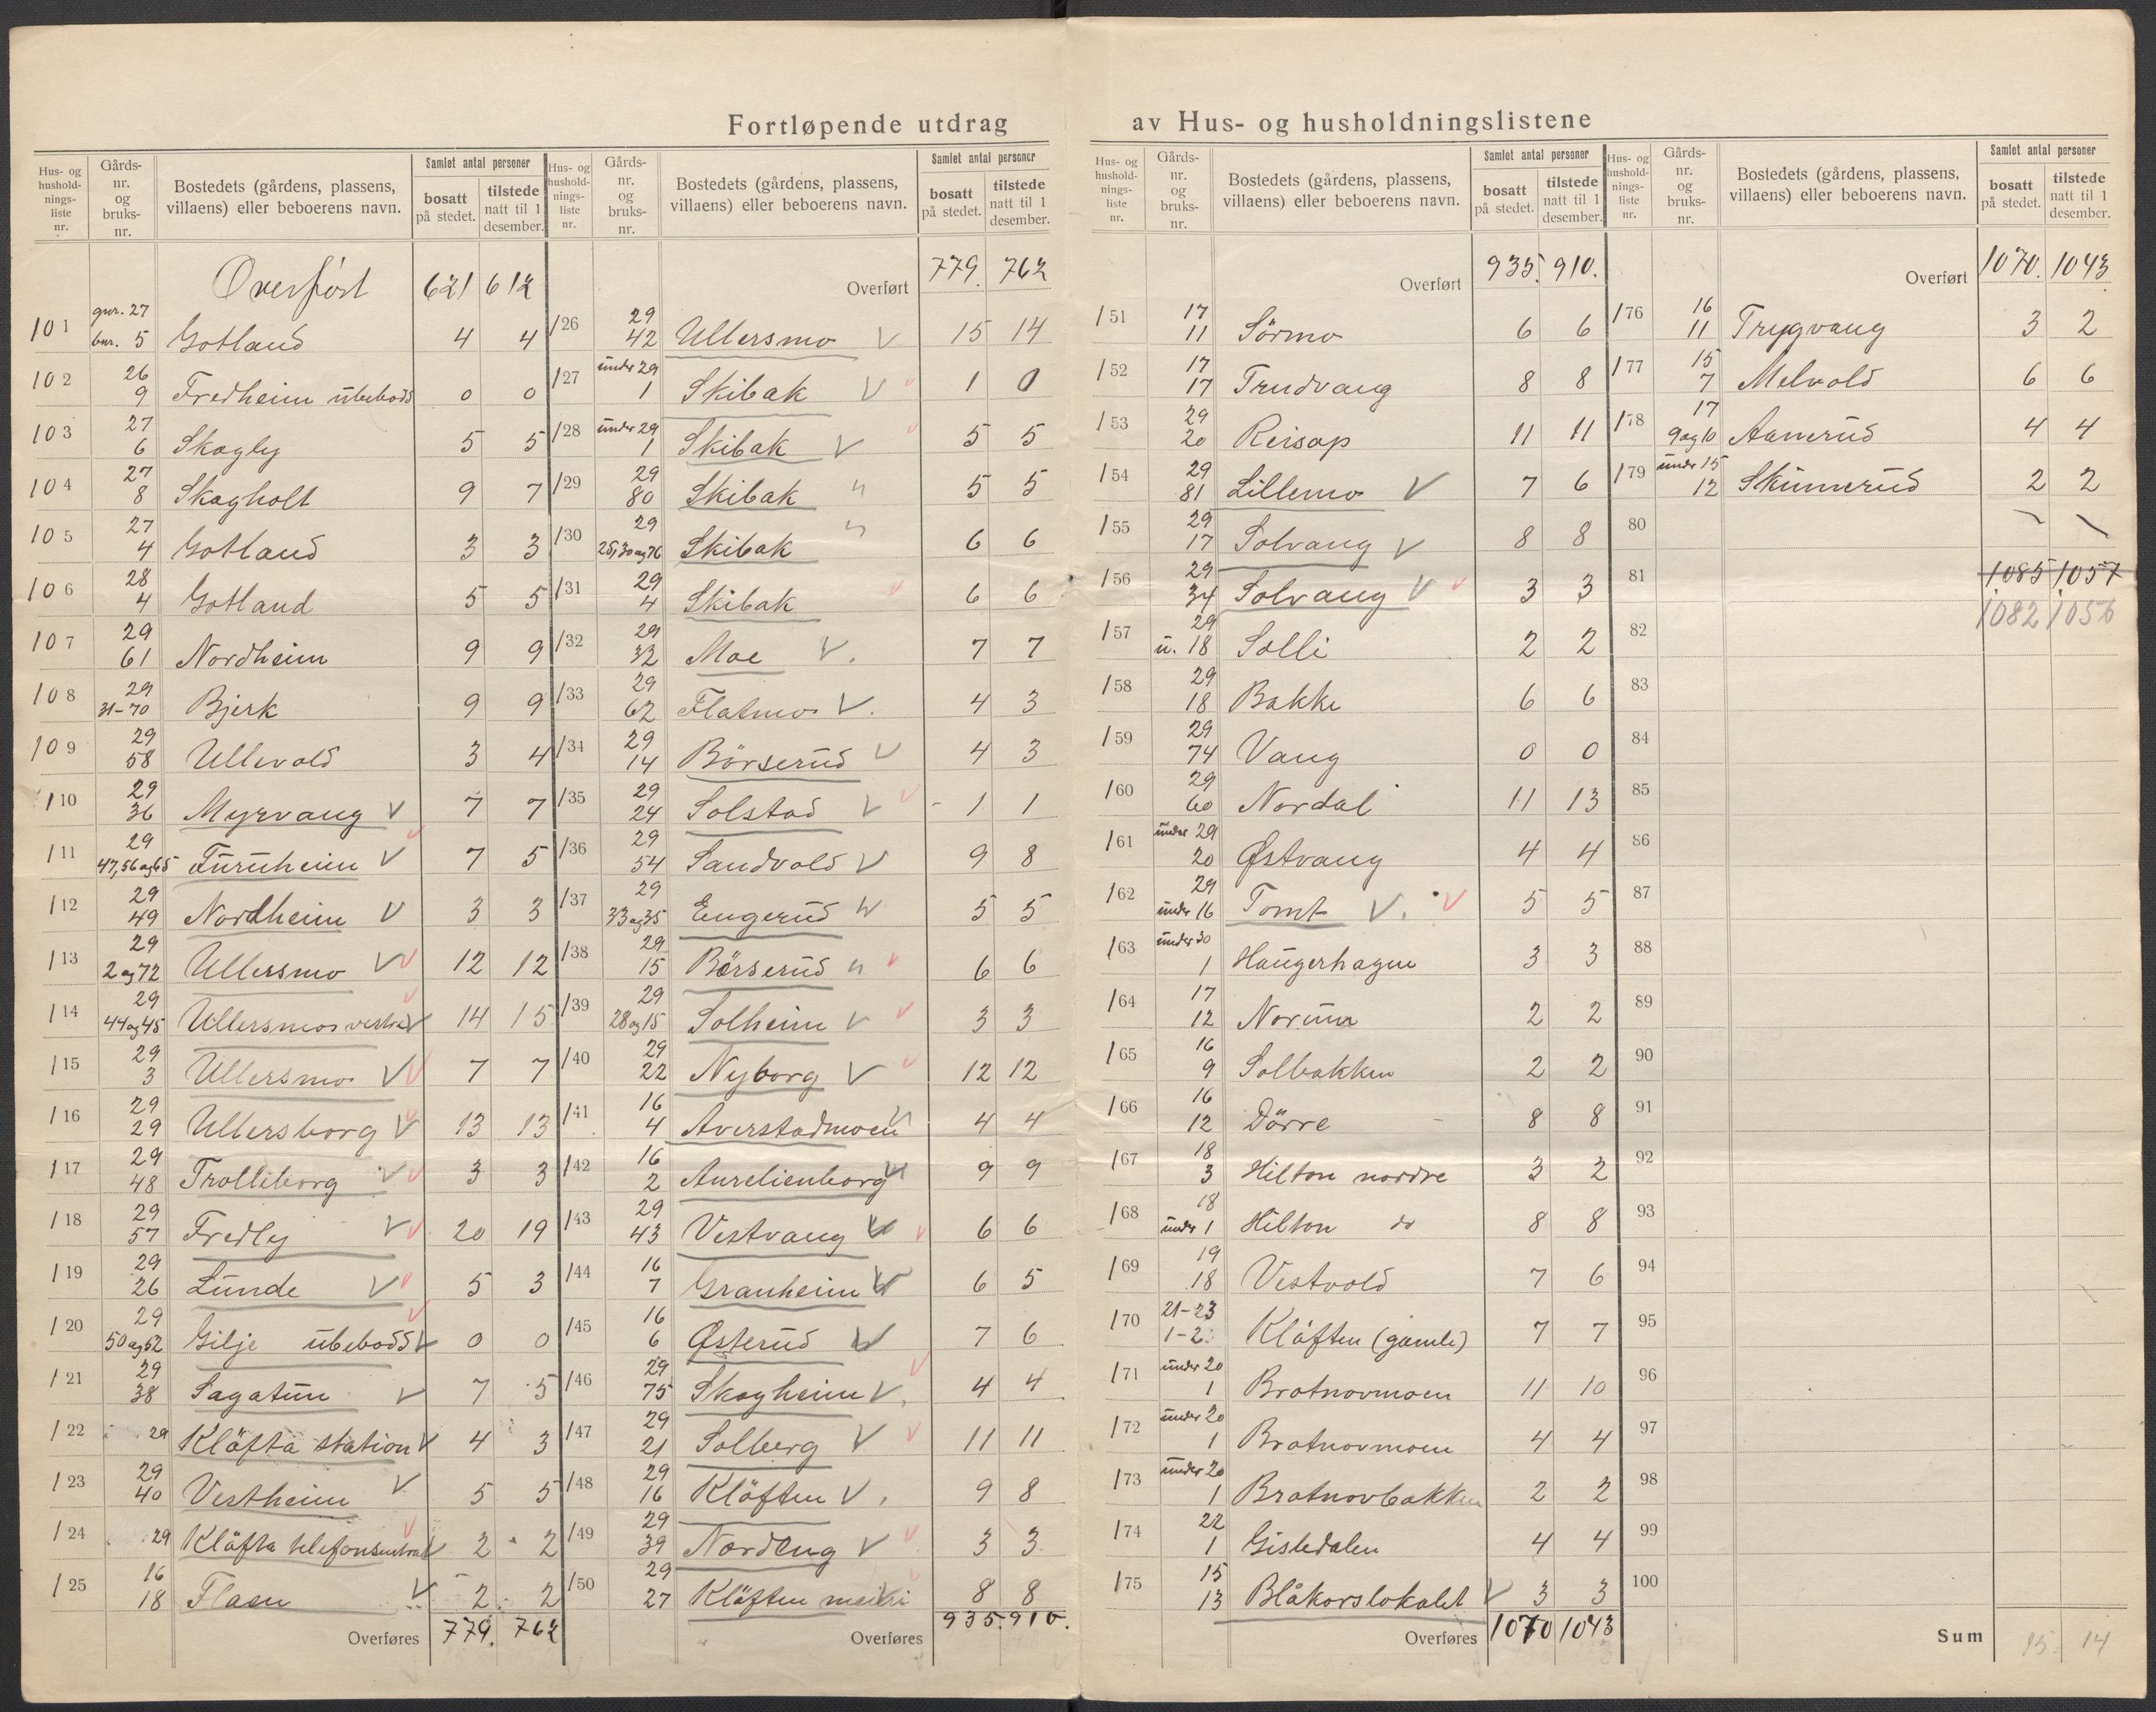 Fortløpende utdrag av Hus- og husholdningslistene
Hus- og husholdnings- liste nr. | Gårds- nr. og bruks- nr. | Bostedets (gårdens, plassens, villaens) eller beboerens navn. | Samlet antal personer bosatt på stedet. | tilstede natt til 1 desember.
Overført 621 612
101 gnr. 27 bnr. 5 Gotland 4 4
102 26 9 Fredheim ubebodd 0 0
103 27 6 Skogly 5 5
104 27 8 Skogholt 9 7
105 27 4 Gotland 3 3
106 28 4 Gotland 5 5
107 29 61 Nordheim 9 9
108 29 31-70 Bjerk 9 9
109 29 58 Ullevold 3 4
110 29 36 Myrvang V 7 7
111 29 47,56 og 65 Furuheim V 7 5
112 29 49 Nordheim V 3 3
113 29 2 og 72 Ullersmo V 12 12
114 29 44 og 45 Ullersmo vestre V 14 15
115 29 3 Ullersmo V 7 7
116 29 29 Ullersborg V 13 13
117 29 48 Trolliborg V 3 3
118 29 57 Fredly V 20 19
119 29 26 Lunde V 5 3
120 29 50 og 62 Gilje ubebodd V 0 0
121 29 38 Sagatun V 7 5
122 29 Kløfta station V 4 3
123 29 40 Vestheim V 5 5
124 29 Kløfta telefonsentral V 2 2
125 16 18 Flaen V 2 2
Overføres 779. 762
Hus- og husholdnings- liste nr. | Gårds- nr. og bruks- nr. | Bostedets (gårdens, plassens, villaens) eller beboerens navn. | Samlet antal personer bosatt på stedet. | tilstede natt til 1 desember.
Overført 779. 762
126 29 42 Ullersmo V 15 14
127 under 29 1 Skibak V 1 0
128 under 29 1 Skibak V 5 5
129 29 80 Skibak 5 5
130 29 25,30 og 76 Skibak 6 6
131 29 4 Skibak 6 6
132 29 32 Moe V. 7 7
133 29 62 Flatmo V. 4 3
134 29 14 Börserud V 4 3
135 29 24 Solstad V 1 1
136 29 54 Sandvold V 9 8
137 29 33 og 35 Engerud 5 5
138 29 15 Börserud 6 6
139 29 28 og 15 Solheim V 3 3
140 29 22 Nyborg V 12 12
141 16 4 Averstadmoen 4 4
142 16 2 Aurelienborg 9 9
143 29 43 Vestvang V 6 6
144 16 7 Granheim V 6 5
145 16 6 Østerud V 7 6
146 29 75 Skogheim V. 4 4
147 29 21 Solberg V 11 11
148 29 16 Klöften V. 9 8
149 29 39 Nordeng V 3 3
150 29 27 Klöften meieri 8 8
Overføres 935. 910.
Hus- og husholdnings- liste nr. | Gårds- nr. og bruks- nr. | Bostedets (gårdens, plassens, villaens) eller beboerens navn. | Samlet antal personer bosatt på stedet. | tilstede natt til 1 desember.
Overført 935. 910.
151 17 11 Sörmo 6 6
152 17 17 Trudvang 8 8
153 29 20 Reisop 11 11
154 29 81 Lillemo V 7 6
155 29 17 Solvang V 8 8
156 29 34 Solvang V 3 3
157 29 u. 18 Solli 2 2
158 29 18 Bakke 6 6
159 29 74 Vang 0 0
160 29 60 Nordal 11 13
161 under 29 20 Østvang 4 4
162 29 under 16 Tomt V. 5 5
163 under 30 1 Haugerhagen 3 3
164 17 12 Norum 2 2
165 16 9 Solbakken 2 2
166 16 12 Dörre 8 8
167 18 3 Hilton nordre 3 2
168 18 under 1 Hilton do 8 8
169 19 18 Vestvold 7 6
170 21-23 1-2 Klöften (gamle) 7 7
171 under 20 1 Brotnovmoen 11 10
172 under 20 1 Brotnovmoen 4 4
173 under 20 1 Brotnovbakken 2 2
174 22 1 Gisledalen 4 4
175 15 13 Blåkorslokalet V 3 3
Overføres 1070 1043
Hus- og husholdnings- liste nr. | Gårds- nr. og bruks- nr. | Bostedets (gårdens, plassens, villaens) eller beboerens navn. | Samlet antal personer bosatt på stedet. | tilstede natt til 1 desember.
Overført 1070. 1043
176 16 11 Trygvang 3 2
177 15 7 Melvold 6 6
178 17 9 og 10 Aamrud 4 4
179 under 15 12 Skumrud 2 2
80
81 1085 1057
1082 1056
82
83
84
85
86
87
88
89
90
91
92
93
94
95
96
97
98
99
100
Sum 15 14